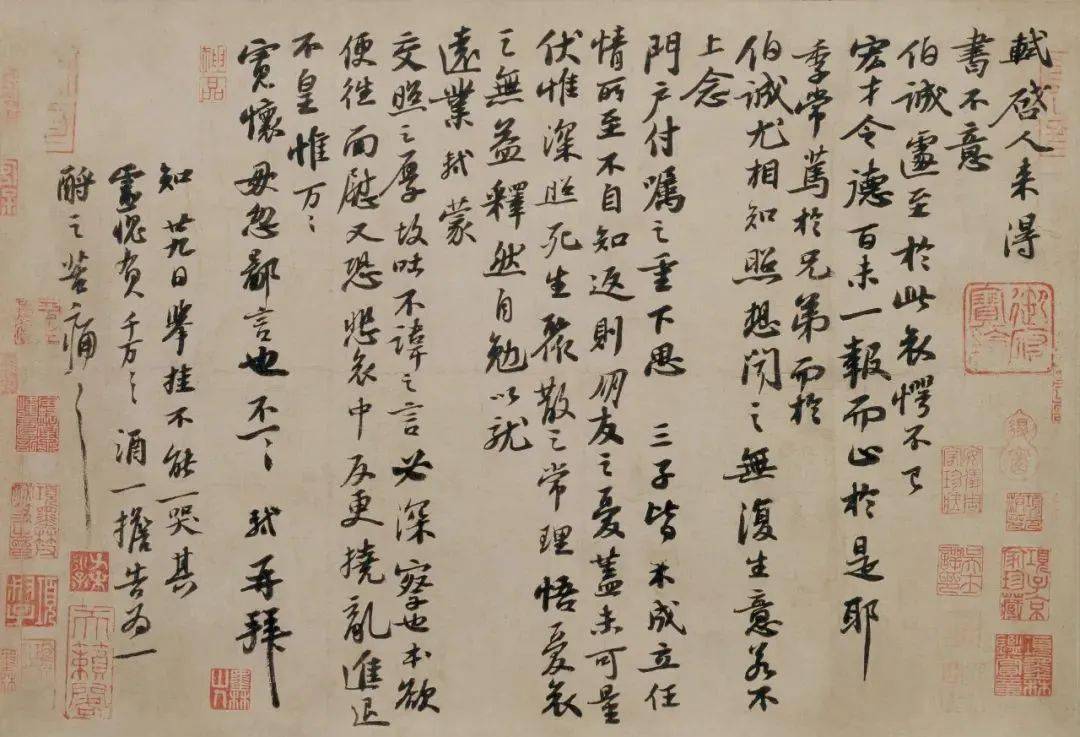 軾啓人来得
書不意
伯誠遽至於此哀愕不已
宏才令德百未一報而止於是耶
季常篤於兄弟而於
伯誠尤相知照想聞之無復生意若不
上念
門户付囑之重下思三子皆未成立任
情所至不自知返則朋友之憂蓋未可量
伏惟深照死生聚散之常理悟憂哀
之無益釋然自勉以就
遠業軾蒙
交照之厚故吐不諱之言必深察也本欲
便往面慰又恐悲哀中反更撓亂進退
不皇惟万〻
寛懷毋忽鄙言也不一〻軾再拜
知廿九日舉挂不能一哭其
靈愧負千万〻酒一擔告為一
酹之苦〻痛〻
御府寶繪
項子京家珍藏
安儀周家珍藏
神品
天籟閣
墨林山人